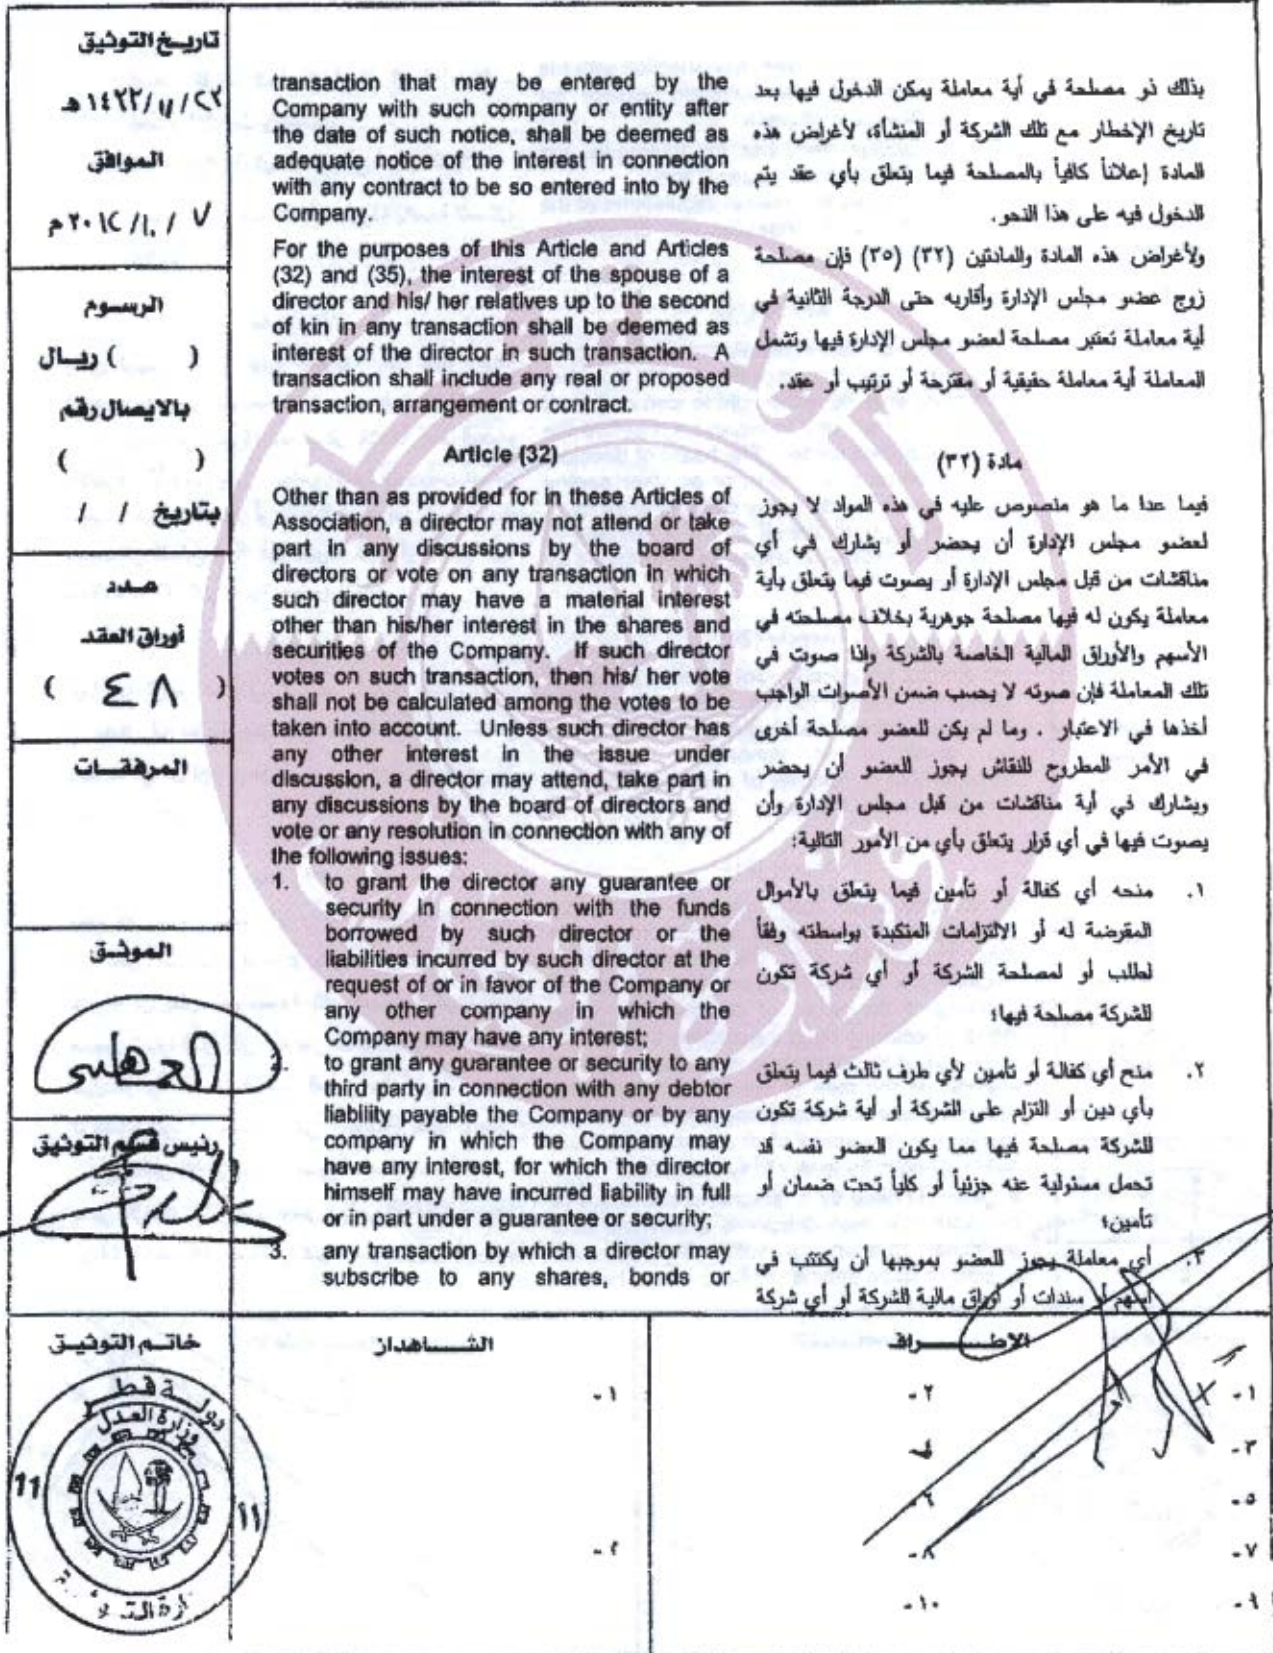 تاريخ التوثيق
الموافق
الرسوم
( ) ريال
بالايصال رقم
( )
بتاريخ / /
عدد
أوراق العقد
( ٤٨ )
المرفقات
الموثق
رئيس قسم التوثيق
transaction that may be entered by the
Company with such company or entity after
the date of such notice, shall be deemed as
adequate notice of the interest in connection
with any contract to be so entered into by the
Company.
For the purposes of this Article and Articles
(32) and (35), the interest of the spouse of a
director and his/ her relatives up to the second
of kin in any transaction shall be deemed as
interest of the director in such transaction. A
transaction shall include any real or proposed
transaction, arrangement or contract.
Article (32)
Other than as provided for in these Articles of
Association, a director may not attend or take
part in any discussions by the board of
directors or vote on any transaction in which
such director may have a material interest
other than his/her interest in the shares and
securities of the Company. If such director
votes on such transaction, then his/ her vote
shall not be calculated among the votes to be
taken into account. Unless such director has
any other interest in the issue under
discussion, a director may attend, take part in
any discussions by the board of directors and
vote or any resolution in connection with any of
the following issues:
1. to grant the director any guarantee or
security in connection with the funds
borrowed by such director or the
liabilities incurred by such director at the
request of or in favor of the Company or
any other company in which the
Company may have any interest;
to grant any guarantee or security to any
third party in connection with any debtor
liability payable the Company or by any
company in which the Company may
have any interest, for which the director
himself may have incurred liability in full
or in part under a guarantee or security;
3. any transaction by which a director may
subscribe to any shares, bonds or
بذلك ذو مصلحة في أية معاملة يمكن الدخول فيها بعد
تاريخ الإخطار مع تلك الشركة أو المنشأة، لأغراض هذه
المادة إعلاناً كافياً بالمصلحة فيما يتعلق بأي عقد يتم
الدخول فيه على هذا النحو.
ولأغراض هذه المادة والمادتين (٣٢) (٣٥) فإن مصلحة
زوج عضو مجلس الإدارة وأقاربه حتى الدرجة الثانية في
أية معاملة تعتبر مصلحة لعضو مجلس الإدارة فيها وتشمل
المعاملة أية معاملة حقيقية أو مقترحة أو ترتيب أو عقد.
مادة (٣٢)
فيما عدا ما هو منصوص عليه في هذه المواد لا يجوز
لعضو مجلس الإدارة أن يحضر أو يشارك في أي
مناقشات من قبل مجلس الإدارة أو يصوت فيما يتعلق بأية
معاملة يكون له فيها مصلحة جوهرية بخلاف مصلحته في
الأسهم والأوراق المالية الخاصة بالشركة وإذا صوت في
تلك المعاملة فإن صوته لا يحسب ضمن الأصوات الواجب
أخذها في الاعتبار . وما لم يكن للعضو مصلحة أخرى
في الأمر المطروح للنقاش يجوز للعضو أن يحضر
ويشارك في أية مناقشات من قبل مجلس الإدارة وأن
يصوت فيها في أي قرار يتعلق بأي من الأمور التالية:
١. منحه أي كفالة أو تأمين فيما يتعلق بالأموال
المقرضة له أو الالتزامات المتكبدة بواسطته وفقاً
لطلب أو لمصلحة الشركة أو أي شركة تكون
للشركة مصلحة فيها؛
٢. منح أي كفالة أو تأمين لأي طرف ثالث فيما يتعلق
بأي دين أو التزام على الشركة أو أية شركة تكون
للشركة مصلحة فيها مما يكون العضو نفسه قد
تحمل مسئولية عنه جزئياً أو كلياً تحت ضمان أو
تأمين؛
٣. أي معاملة يجوز للعضو بموجبها أن يكتتب في
أسهم أو سندات أو أوراق مالية للشركة أو أي شركة
خاتم التوثيق
دولة قطر
وزارة العدل
11
11
الشاهدان
١ -
٤ -
الاطراف
١ -
٢ -
٣ -
٥ -
٦ -
٧ -
٨ -
٩ -
١٠ -